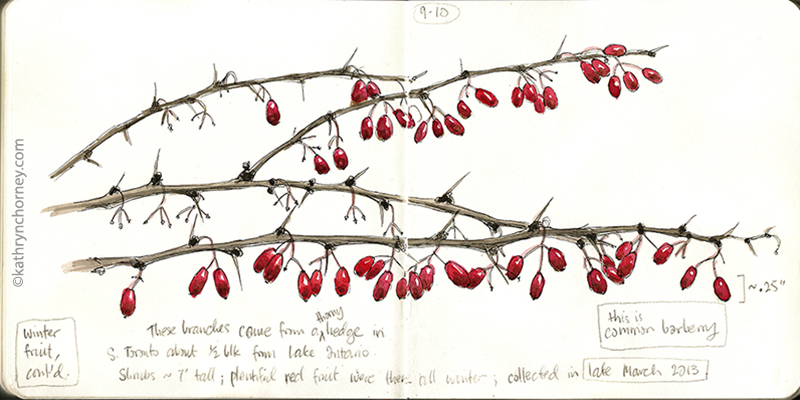 9-10
©kathrynchorney.com
~.25"
this is
common barberry
winter
fruit,
cont'd.
These branches come from a thorny hedge in
S. Toronto about ½ blk from Lake Ontario.
Shrubs ~ 7' tall; plentiful red fruit were there all winter; collected in late March 2013